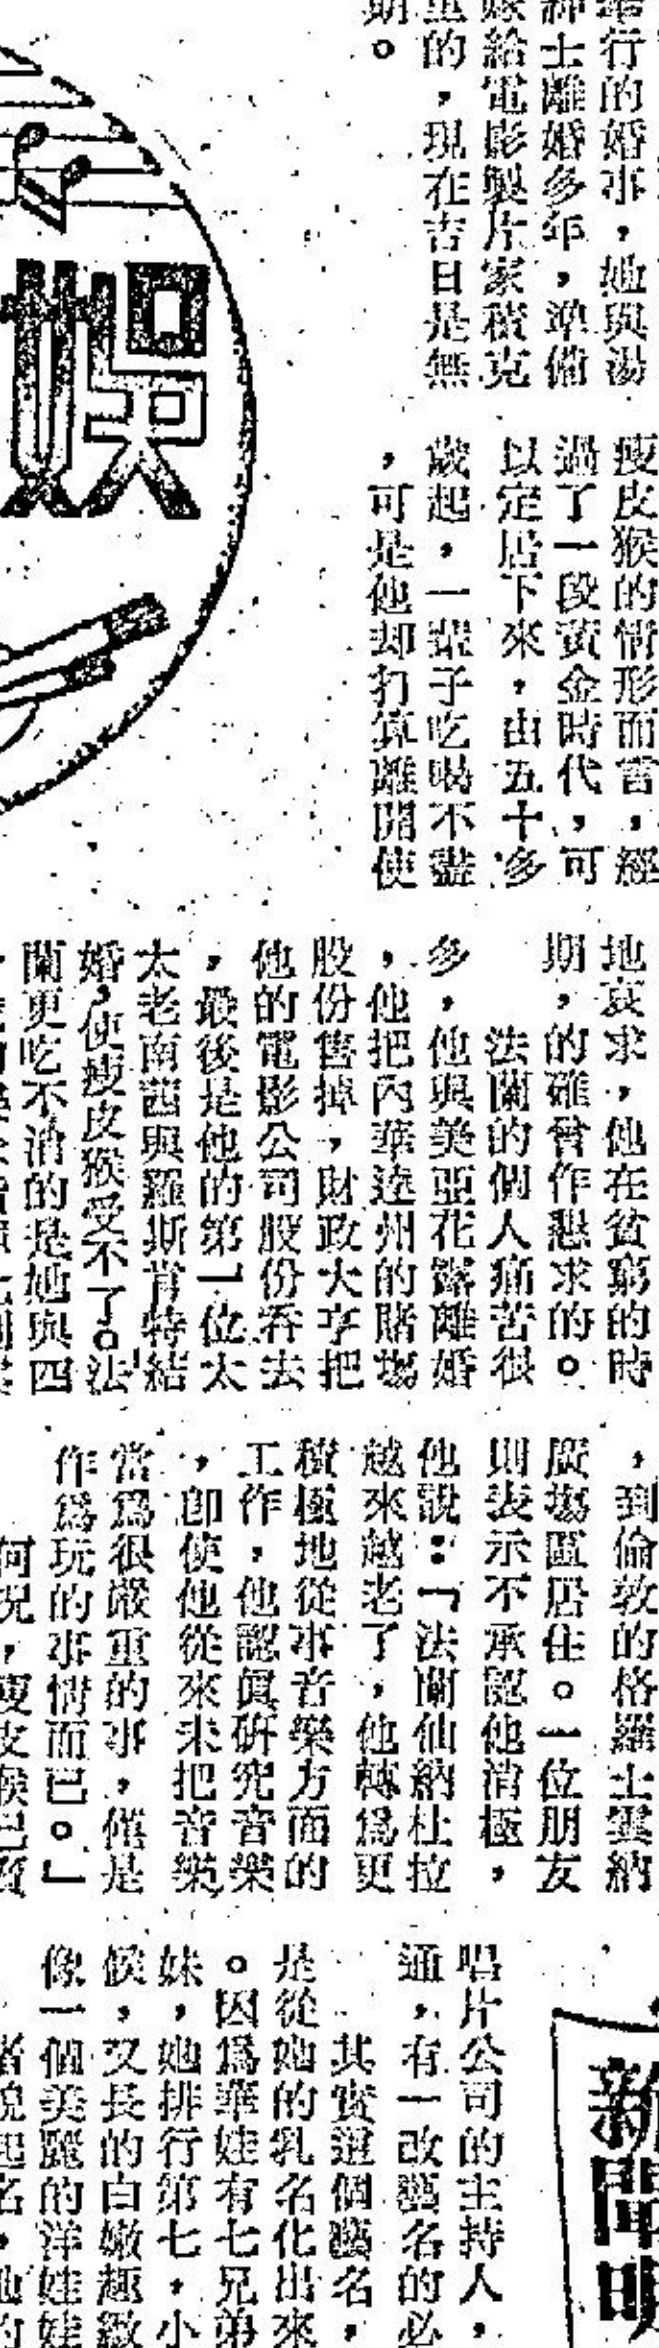 舉行的婚事，她與湯
紳士離婚多年，準備
嫁給電影製片家積克
重的，現在吉日是無
期。
瘦皮猴的情形而言，經
過了一段黃金時代，可
以定居下來，由五十多
歲起，一輩子吃喝不盡
，可是他却打算離開使
娛
地哀求，他在貧窮的時
期，的確曾作懇求的。
法蘭的個人痛苦很
多，他與美亞花露離婚
，他把內華達州的賭場
股份售掉，財政大亨把
他的電影公司股份吞去
，最後是他的第一位太
太老南茜與羅斯肯特結
婚，使瘦皮猴受不了。法
蘭更吃不消的是她與四
，到倫敦的格羅士雲納
廣塲區居住。一位朋友
則表示不承認他消極，
他說：「法蘭仙納杜拉
越來越老了，他轉爲更
積極地從事音樂方面的
工作，他認眞硏究音樂
，卽使他從來未把音樂
當爲很嚴重的事，僅是
作爲玩的事情而已。」
何況，瘦皮猴已賣
新聞明
唱片公司的主持人，
通，有一改藝名的必
其實這個藝名，
是從她的乳名化出來
。因爲華娃有七兄弟
妹，她排行第七，小
候，又長的白嫩趣緻
像一個美麗的洋娃娃